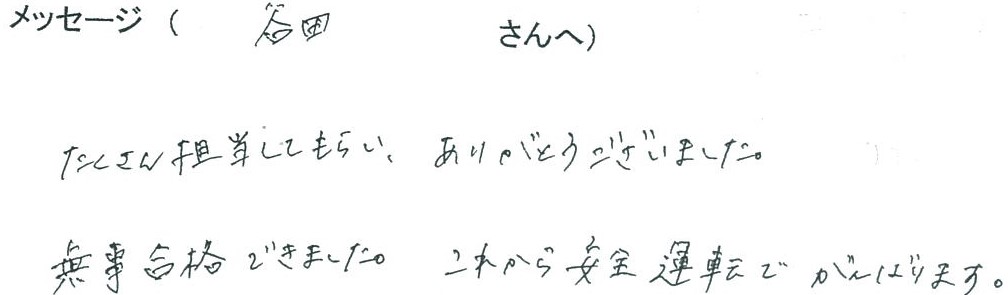 メッセージ（ 谷田 さんへ）
たくさん担当してもらい、ありがとうございました。
無事合格できました。これから安全運転でがんばります。